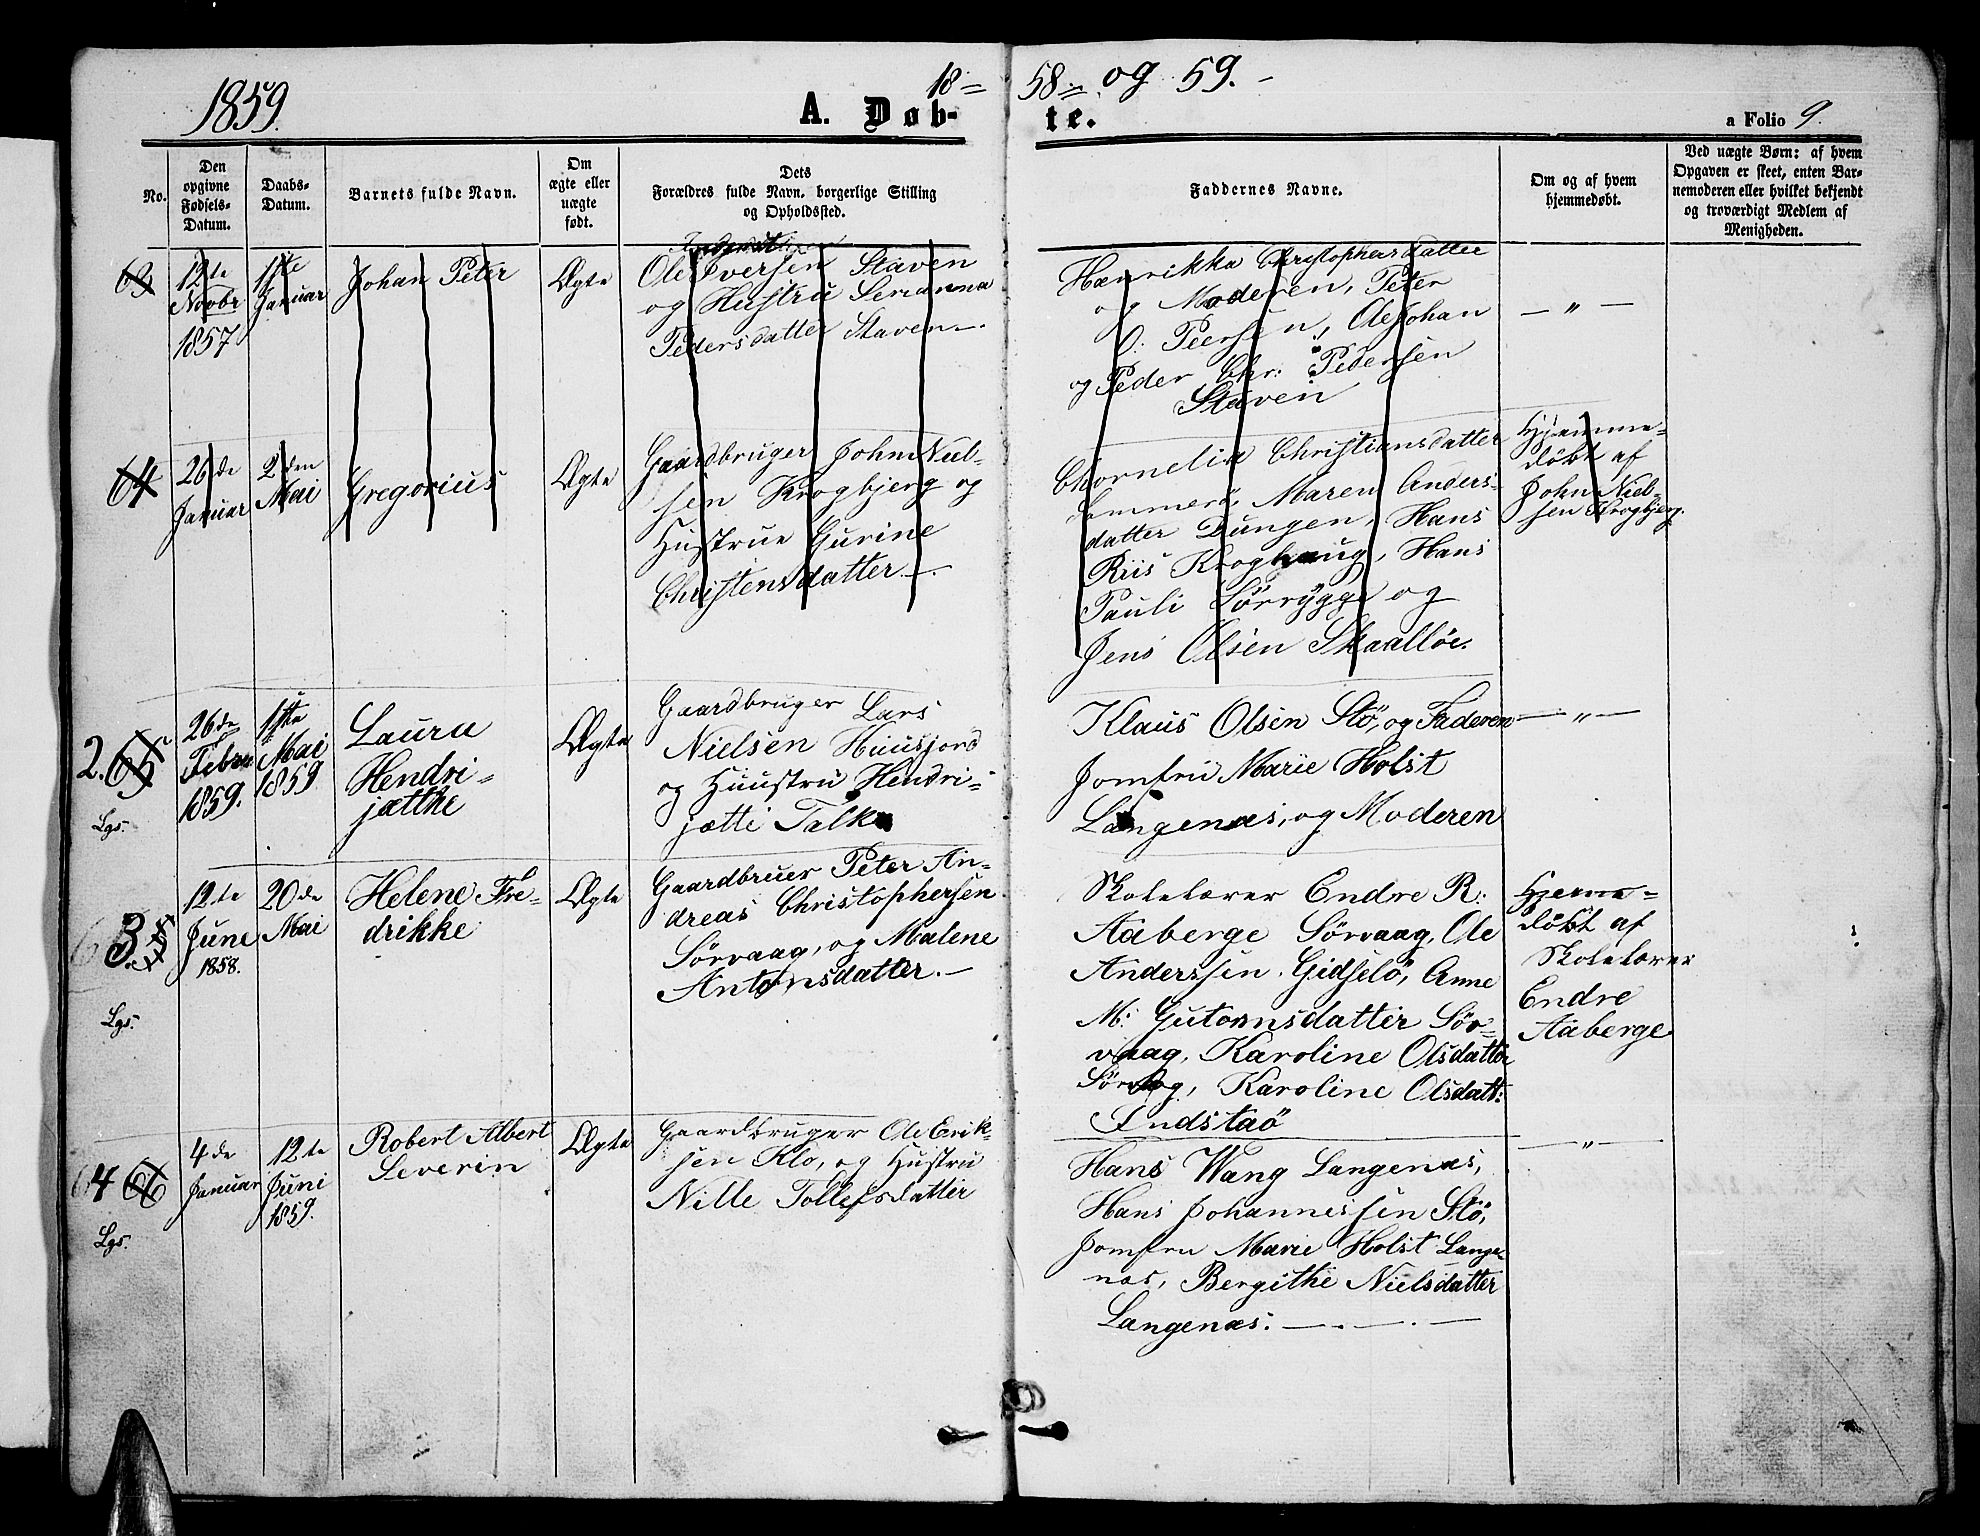 1859.
18 = 58 = og 59. -
A. Døb- te.
a Folio 9.
No.
Den
opgivne
Fødsels-
Datum.
Daabs-
Datum.
Barnets fulde Navn.
Om
ægte eller
uægte
født.
Dets
Forældres fulde Navn, borgerlige Stilling
og Opholdssted.
Faddernes Navne.
Om og af hvem
hjemmedøbt.
Ved uægte Børn: af hvem
Opgaven er skeet, enten Bar-
nemoderen eller hvilket bekjendt
og troværdigt Medlem af
Menigheden.
63
12te
Novbr
1857
1ste
Januar
Johan Peter
Ægte
Ole Iversen Staven
og Hustru Serianna
Pedersdatter Staven -.
Henrikka Christophersdatter
og Moderen, Peter
O: Peersen, Ole Johan
og Peder Chr: Pedersen
Staven
- " -
64
26de
Januar
2den
Mai
Gregorius
Ægte
Gaardbruger John Niel-
sen Krogbjerg og
Hustrue Gurine
Christensdatter. -
Chornelia Christiansdatter
Sommerö, Maren Anders-
datter Dungen, Hans
Riis Kroghaug, Hans
Pauli Sörrygge og
Jens Olsen Skaallöe.
Hjemme-
döbt af
John Niel-
sen Krogbjerg.
2. 65
Lgs.
26de
Febru
1859.
1ste
Mai
1859
Laura
Hendri-
jættke
Ægte
Gaardbruger Lars
Nielsen Huusjord
og Huustru Hendri-
jætti Falk
Klaus Olsen Stö, og Faderen
Jomfru Marie Holst
Langenæs, og Moderen
- " -
3.
Lgs.
12te
June
1858.
20de
Mai
Helene Fre-
drikke
Ægte
Gaardbruer Peter An-
dreas Christophersen
Sörvaag, og Malene
Antonsdatter. -
Skolelærer Endre R:
Aaberge Sörvaag, Ole
Anderssen Gidselö, Anne
M: Gutormsdatter Sör-
vaag, Karoline Olsdatter
Sörvaag, Karoline Olsdatt:
Indstaö
Hjeme-
döbt af
Skolelærer
Endre
Aaberge
4 66
Lgs.
4de
Januar
12te
Juni
1859.
Robert Albert
Severin
Ægte
Gaardbruger Ole Erik-
sen Klo, og Hustru
Nille Tollefsdatter
Hans Wang Langenæs,
Hans Johannessen Stö,
Jomfru Marie Holst Lange-
næs, Bergithe Nielsdatter
Langenæs. -. -. -
- " -